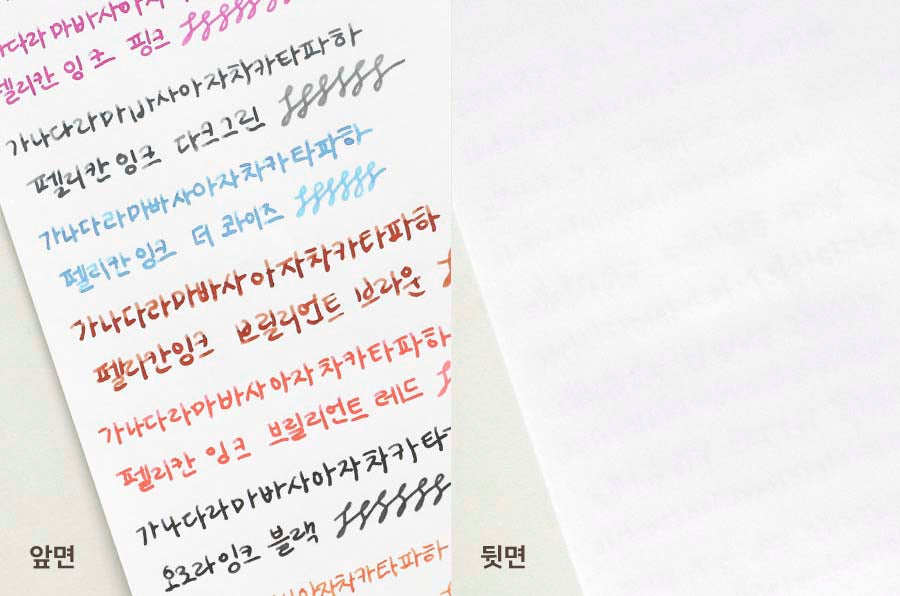 나다라마바사아자
펠리칸 잉크 핑크
가나다라마바사아자차카타파하
펠리칸 잉크 다크그린
가나다라마바사아자차카타파하
펠리칸 잉크 더 콰이즈
가나다라마바사아자차카타파하
펠리칸잉크 브릴리언트 브라운
가나다라마바사아자차카타파하
펠리칸 잉크 브릴리언트 레드
가나다라마바사아자차카타
오로라잉크 블랙
바사아자차카타파하
앞면
뒷면